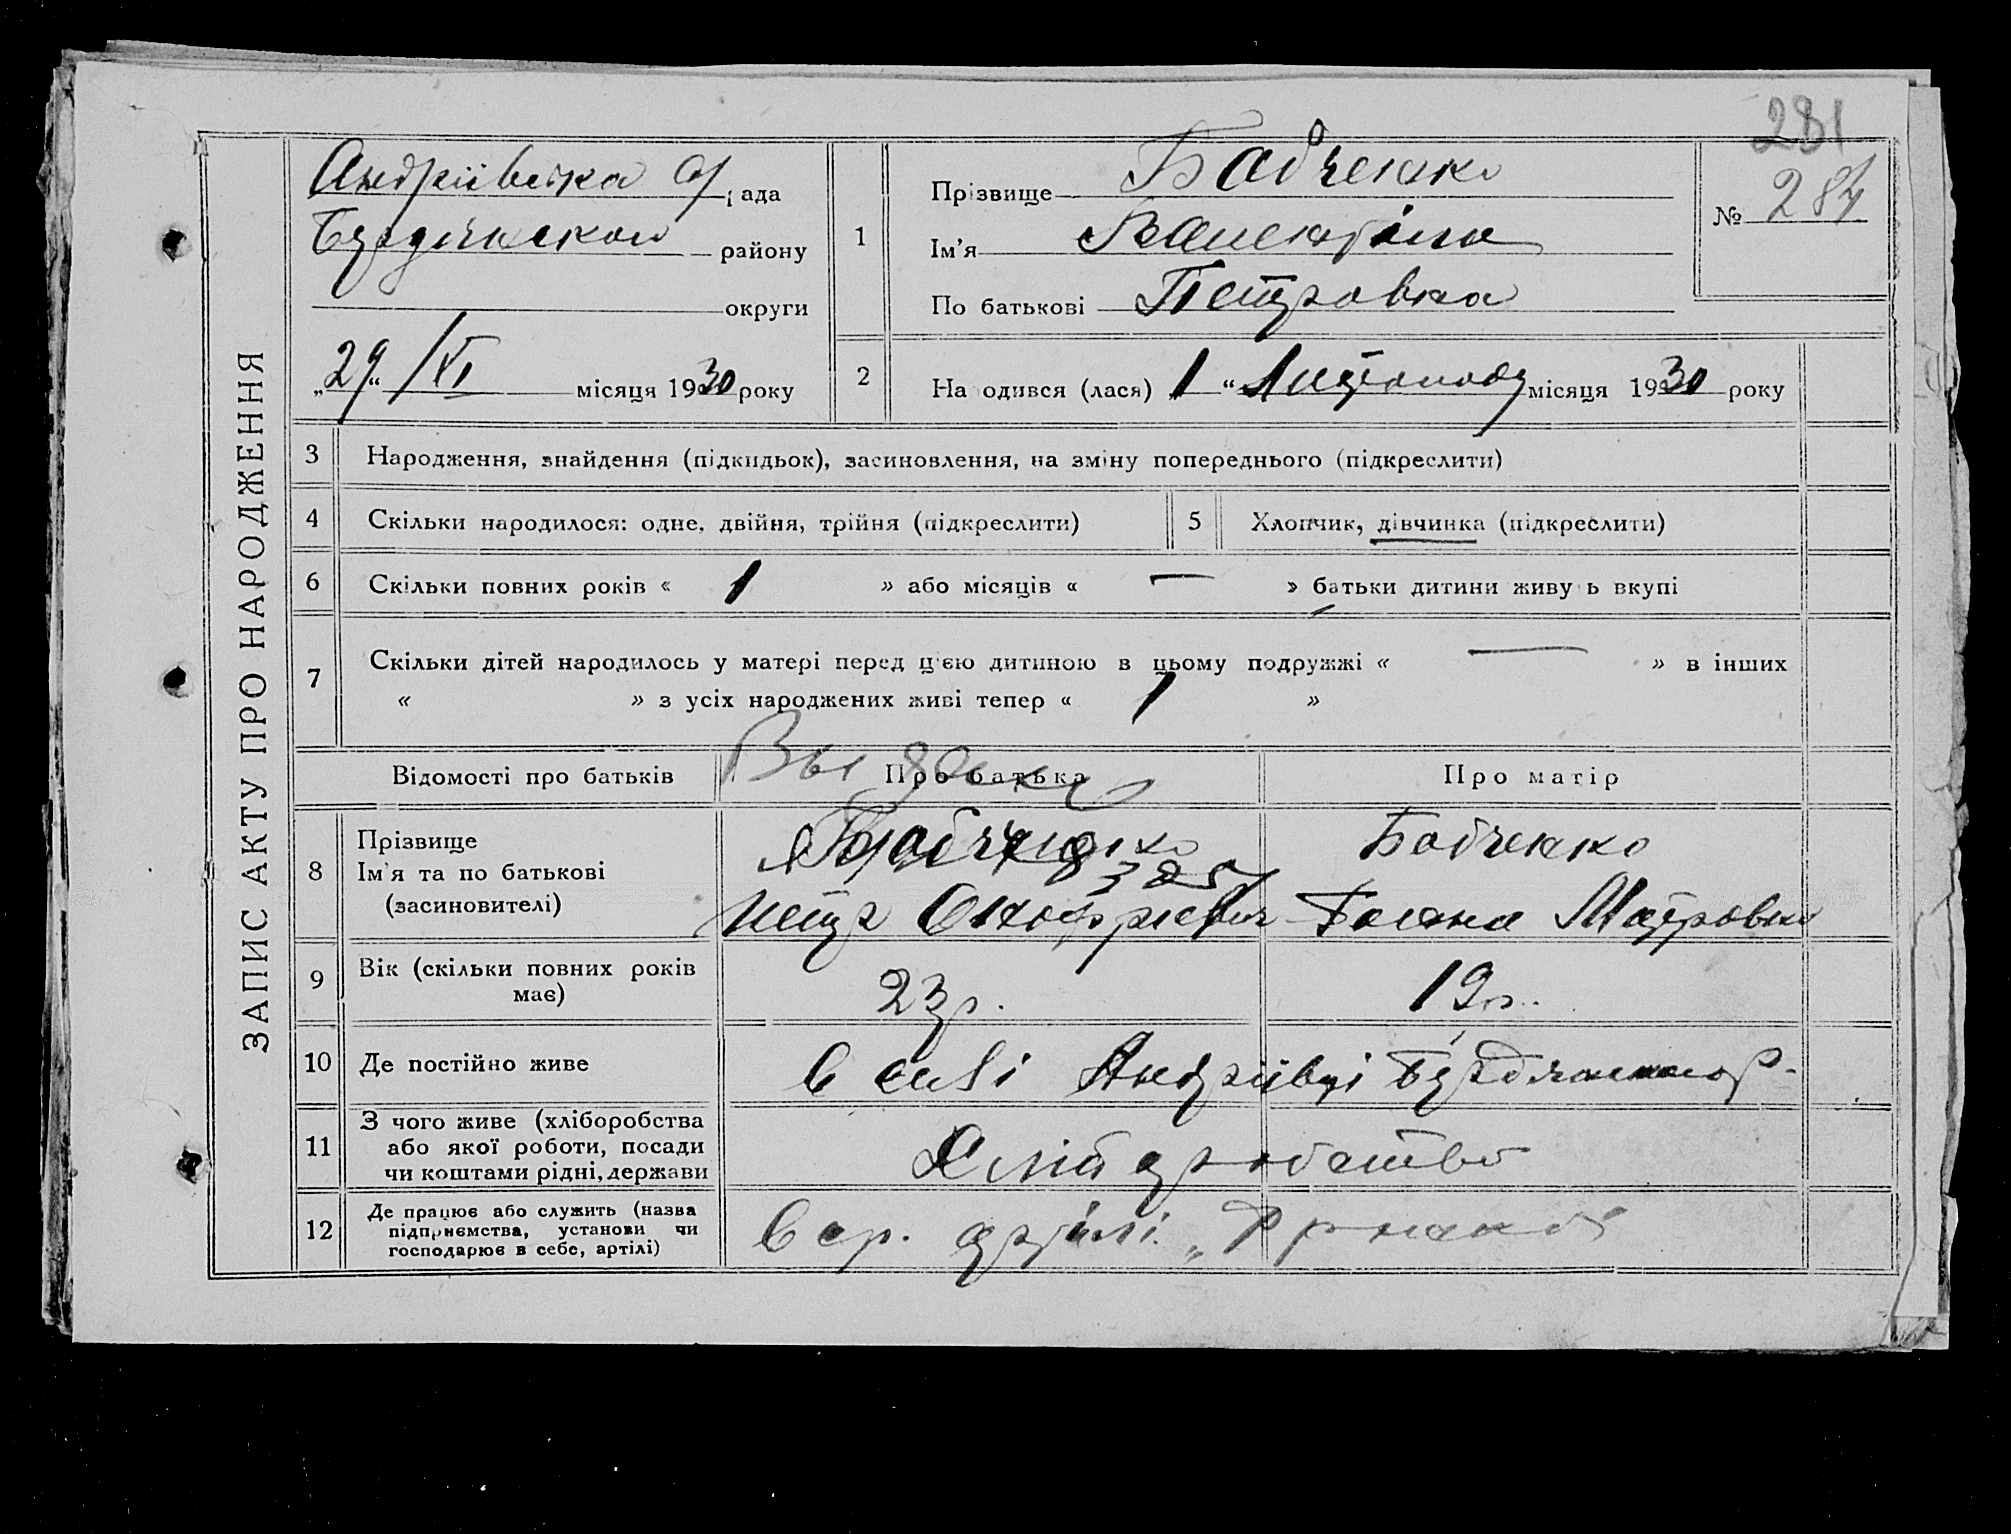 281
ЗАПИС АКТУ ПРО НАРОДЖЕННЯ
Андріївська с/рада
Бердянского району
округи
„29“ /XI місяця 1930 року
1
Прізвище Бабченко
Ім'я Валентіна
По батькові Петровна
№ 284
2 На одився (лася) „1“ Листопаду місяця 1930 року
3 Народження, знайдення (підкидьок), засиновлення, на зміну попереднього (підкреслити)
4 Скільки народилося: одне, двійня, трійня (підкреслити)
5 Хлопчик, дівчинка (підкреслити)
6 Скільки повних років « 1 » або місяців « — » батьки дитини живу ь вкупі
7 Скільки дітей народилось у матері перед цією дитиною в цьому подружжі « — » в інших
« » з усіх народжених живі тепер « 1 »
Відомості про батьків
Про батька
Про матір
8 Прізвище
Ім'я та по батькові
(засиновителі)
Бабченко
Петр Онофриевич
Бабченко
9 Вік (скільки повних років
має)
23 р.
19 р.
10 Де постійно живе
в селі Андріївці Бердянського р.
11 З чого живе (хліборобства
або якої роботи, посади
чи коштами рідні, держави
12 Де працює або служить (назва
підприємства, установи чи
господарює в себе, артілі)